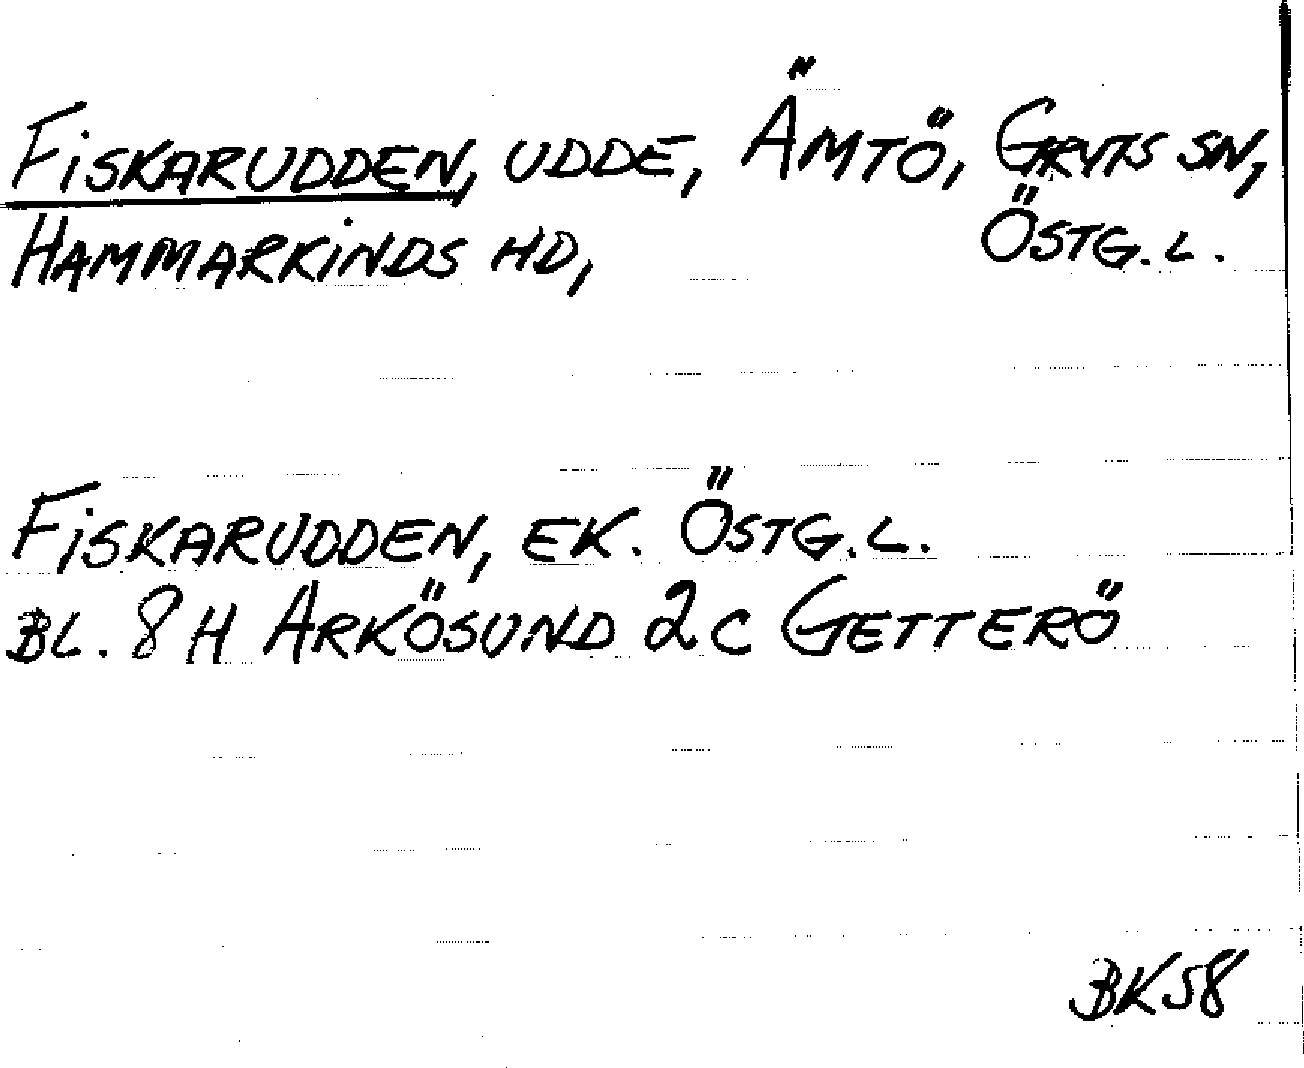 FISKARUDDEN, UDDE, ÄMTÖ, GRYTS SN,
HAMMARKINDS HD, ÖSTG.L.
FISKARUDDEN, EK. ÖSTG.L.
BL. 8 H ARKÖSUND 2 C GETTERÖ
BK58